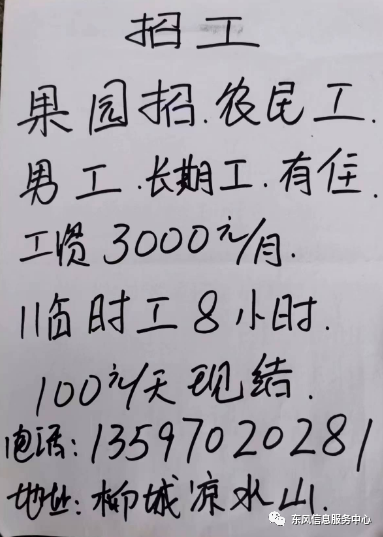 招工
果园招.农民工.
男工.长期工.有住.
工资3000元/月.
临时工8小时.
100元/天现结.
电话:13597020281
地址:柳城凉水山.
东风信息服务中心